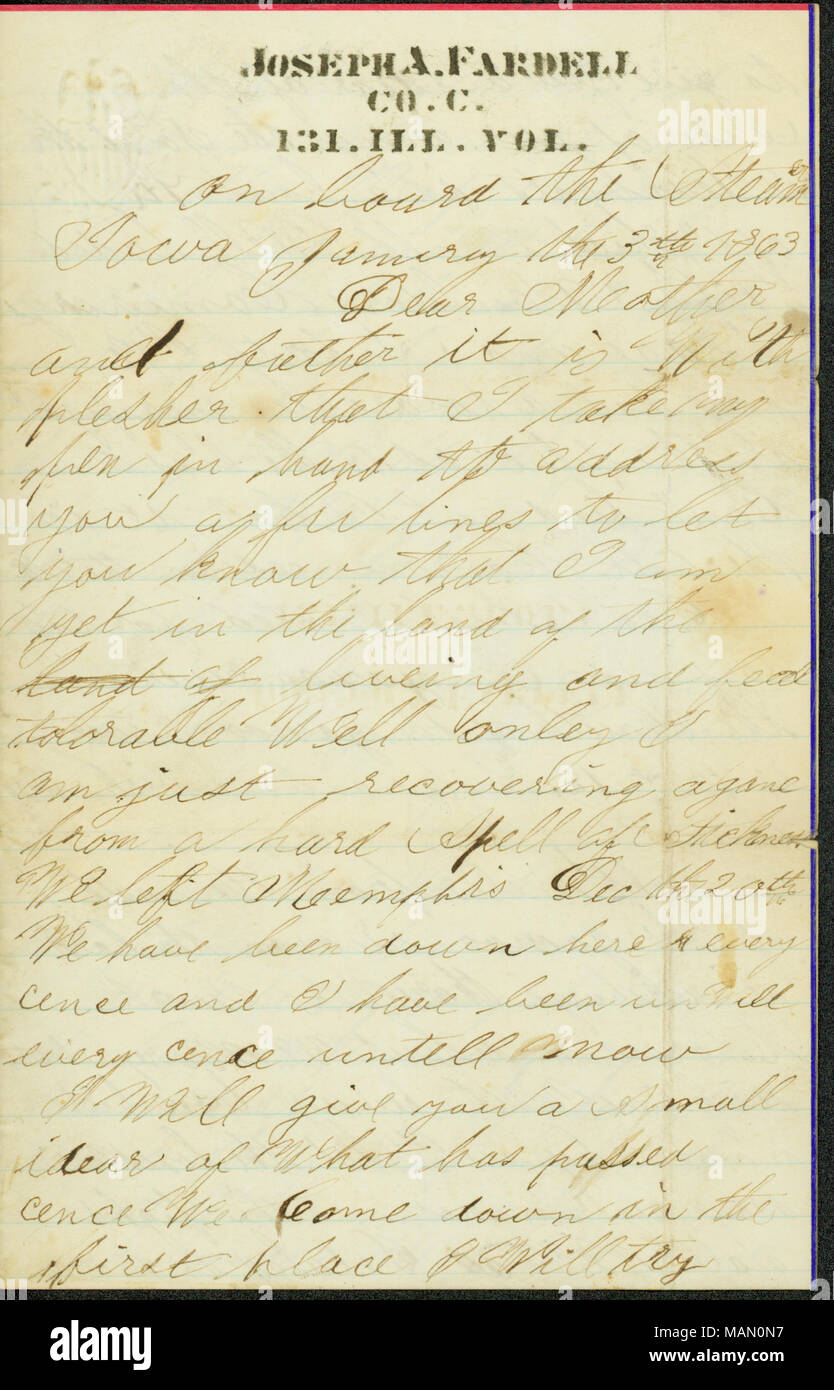 JOSEPH A. FARDELL
CO. C.
131. ILL. VOL.
on board the Steamer
Iowa Janurey the 3th 1863
Dear Meother
and futher it is With
plesher that I take my
pen in hand to address
you a fu lines to let
you know that I am
yet in the land of the
land of liveing and feal
tolorable Well onley I
am just recovering agane
from a hard Spell of Sickness
We left Memphis Dec th 20th
We have been down here every
cence and I have been unWell
every cence untell now
I Will give you a Small
idear of What has passed
cence We Come down in the
first place I Will try
alamy
Image ID: MAN0N7
www.alamy.com